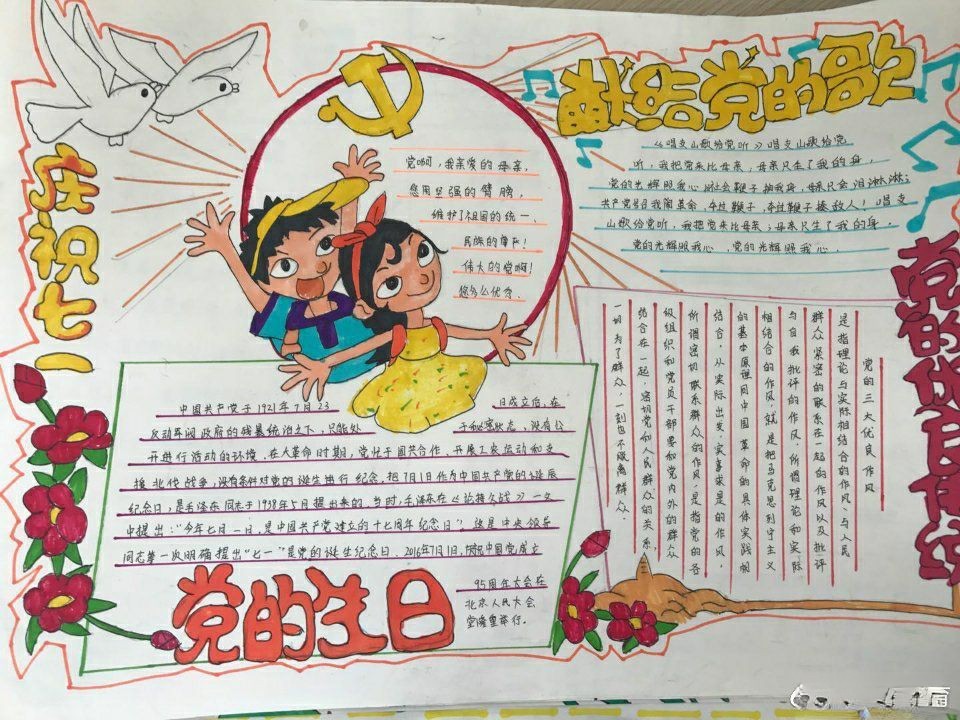 庆祝七一
党啊，我亲爱的母亲，
您用坚强的臂膀，
维护了祖国的统一、
民族的尊严！
伟大的党啊！
您多么优秀．
献给党的歌
《唱支山歌给党听》唱支山歌给党
听，我把党来比母亲，母亲只生了我的身，
党的光辉照我心．旧社会鞭子抽我身，母亲只会泪淋淋；
共产党号召我闹革命，夺过鞭子，夺过鞭子揍敌人！唱支
山歌给党听，我把党来比母亲；母亲只生了我的身
党的光辉照我心，党的光辉照我心．
党的优良传统
党的三大优良作风
是指理论与实际相结合的作风、与人民
群众紧密的联系在一起的作风以及批评
与自我批评的作风，所谓理论和实际
相结合的作风，就是把马克思列宁主义
的基本原理同中国革命的具体实践相
结合，从实际出发，实事求是的作风，
所谓密切联系群众的作风，是指党的各
级组织和党员干部要和党内外的群众
结合在一起，密切党和人民群众的关系，
一切为了群众，一刻也不脱离群众．
中国共产党于1921年7月23日成立后，在
反动军阀政府的残暴统治之下，只能处于秘密状态，没有公
开进行活动的环境．在大革命时期，党忙于国共合作、开展工农运动和支
援北伐战争，没有条件对党的诞生举行纪念．把7月1日作为中国共产党的诞辰
纪念日，是毛泽东同志于1938年5月提出来的．当时，毛泽东在《论持久战》一文
中提出：“今年七月一日，是中国共产党建立的十七周年纪念日”，这是中央领导
同志第一次明确提出“七一”是党的诞生纪念日．2016年7月1日，庆祝中国党成立
95周年大会在
北京人民大会
堂隆重举行．
党的生日